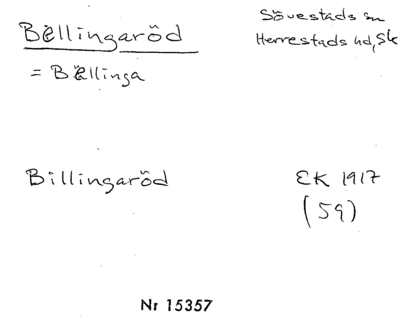 Bellingaröd
Sövestads sn
Herrestads hd, Sk
= Bellinga
Billingaröd
EK 1917
(59)
Nr 15357